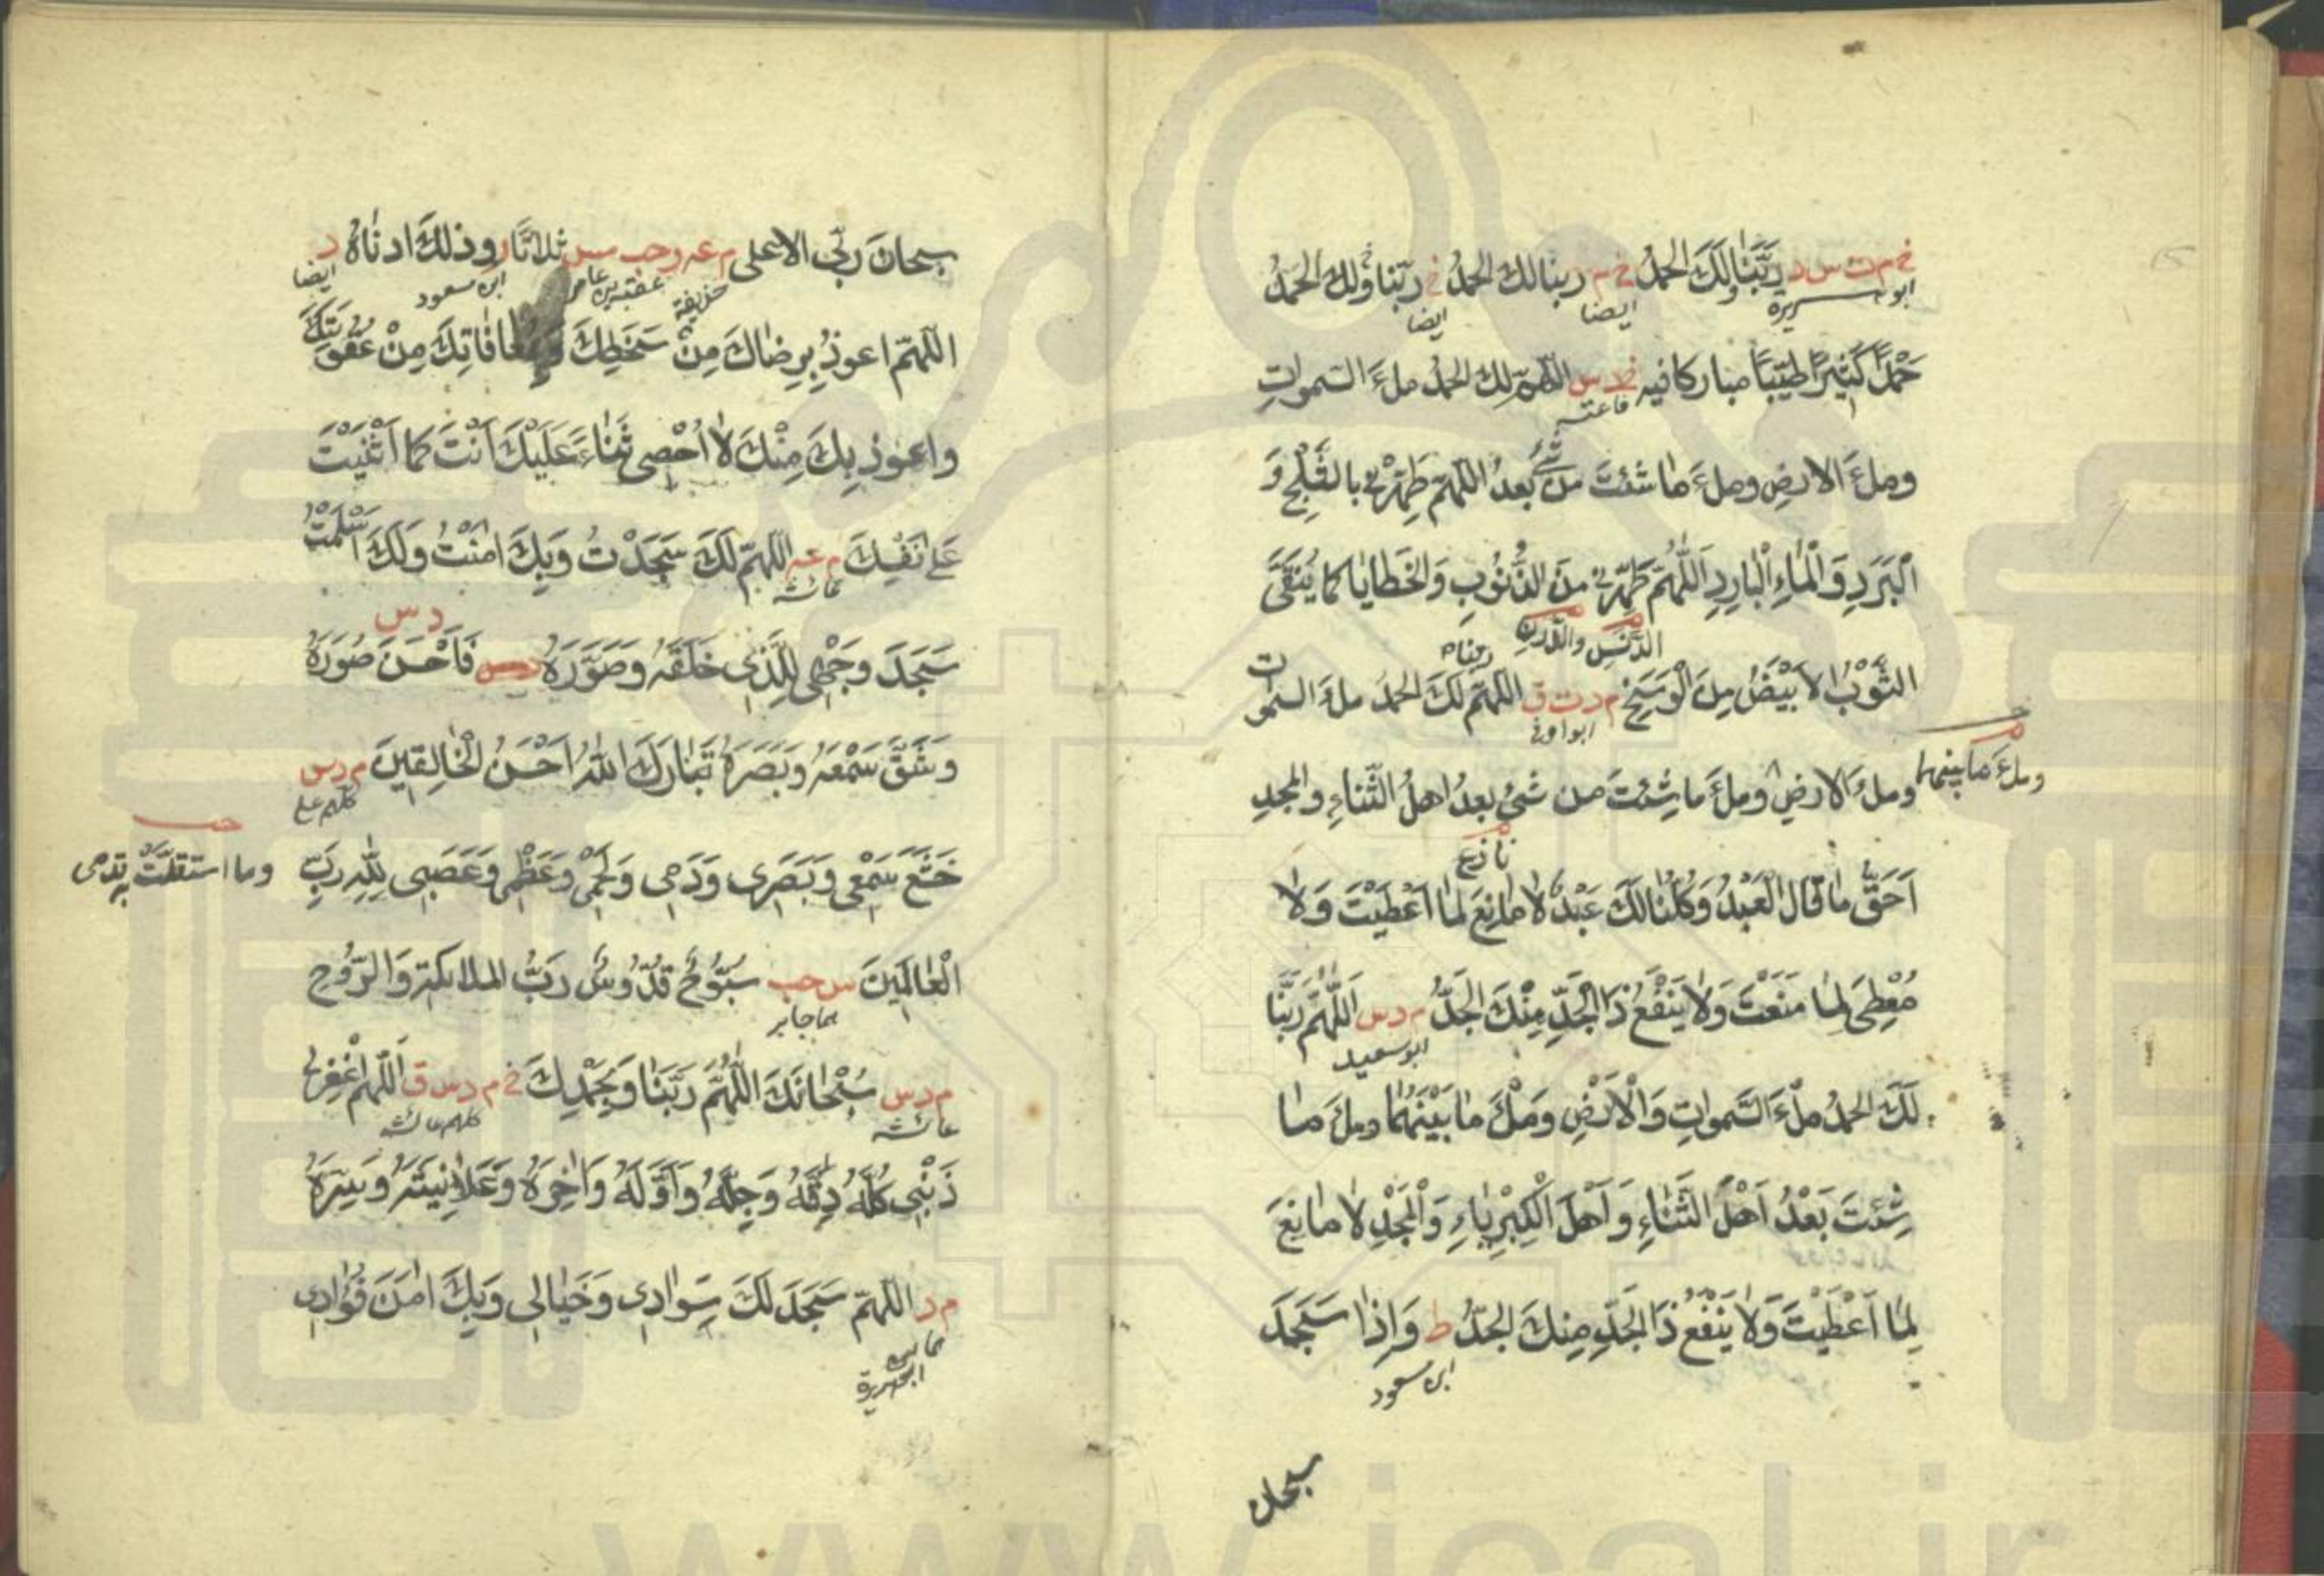 خ م ت س د ربنا ولك الحمد خ م ربنا لك الحمد خ ربنا ولك الحمد
ابو هريرة ايضا ايضا
حَمْدًا كَثِيرًا طَيِّبًا مباركا فيه خ د س اللهم لك الحمد ملءَ السموات
ومِلءَ الارضِ وملءَ ما شئتَ من شيءٍ بعدُ اللهمّ طهِّرْنى بالثَّلْجِ وَ
الْبَرَدِ وَالْمَاءِ الْبَارِدِ اَللّٰهُمَّ طَهِّرْنى منَ الذُّنُوبِ وَالْخَطَايَا كما يُنَقَّى
الدَّنَسِ والدَّرَنِ ربنا
الثَّوْبُ الاَبْيَضُ مِنَ الْوَسَخِ م د ت ق اللهمّ لكَ الحمدُ ملءَ السموات
وملءَ ما بينهما
وملءَ الارضِ وملءَ ما شِئتَ من شئٍ بعدُ اهلَ الثَّناءِ والمجدِ
اَحَقُّ مَا قَالَ الْعَبْدُ وَكُلُّنَا لَكَ عَبْدٌ لَا مَانِعَ لِمَا اَعْطَيْتَ وَلَا
مُعْطِىَ لِمَا مَنَعْتَ وَلَا يَنْفَعُ ذَا الْجَدِّ مِنْكَ الْجَدُّ م د س اَللّٰهُمَّ رَبَّنَا
ابو سعيد
لَكَ الحمدُ مِلْءَ السَّمواتِ وَالْاَرْضِ وَمِلْءَ مَا بَيْنَهُمَا وملءَ مَا
شِئْتَ بَعْدُ اَهْلَ الثَّنَاءِ وَاَهْلَ الْكِبْرِيَاءِ وَالْمَجْدِ لَا مَانِعَ
لِمَا اَعْطَيْتَ وَلَا يَنْفَعُ ذَا الْجَدِّ مِنكَ الجَدُّ ط وَاِذَا سَجَدَ
ابن مسعود
سبحان
سبحانَ ربّى الاعلى م عه ر حب مس ثلاثًا ر وذلكَ ادناهُ د
حذيفة عقبة بن عامر ابن مسعود ايضا
اللهمّ اعوذُ بِرِضاكَ مِنْ سَخَطِكَ وَبمُعافاتِكَ مِنْ عُقُوبَتِكَ
واعوذ بِكَ مِنْكَ لَا اُحْصِى ثَنَاءً عَلَيْكَ اَنْتَ كما اَثْنَيْتَ
عَلى نَفْسِكَ م عه اللهمّ لَكَ سَجَدْتُ وَبِكَ امَنْتُ وَلَكَ اَسْلَمْتُ
عائشه
د س
سَجَدَ وَجْهِى لِلَّذِى خَلَقَهُ وَصَوَّرَهُ فَاَحْسَنَ صُوَرَهُ
وَشَقَّ سَمْعَهُ وَبَصَرَهُ تَبَارَكَ اللهُ اَحْسَنُ الْخَالِقِينَ م د س
كلهم على
خَشَعَ سَمْعِى وَبَصَرِى وَدَمِى وَلَحْمِى وَعَظْمِى وَعَصَبِى لِلّٰهِ رَبِّ
حب
وما استقلَّتْ به قدمى
الْعَالَمِينَ س حب سُبُّوحٌ قُدُّوسٌ رَبُّ الملائكةِ وَالرُّوحِ
هما جابر
م د س سُبْحَانَكَ اللّٰهُمَّ رَبَّنَا وَبِحَمْدِكَ خ م د س ق اَللّٰهم اغْفِرْلى
عائشه كلهم عائشه
ذَنْبِى كُلَّهُ دِقَّهُ وَجِلَّهُ وَاَوَّلَهُ وَاٰخِرَهُ وَعَلَانِيَتَهُ وَسِرَّهُ
م د اللهمّ سَجَدَ لَكَ سَوَادِى وَخَيَالِى وَبِكَ امَنَ فُؤادِى